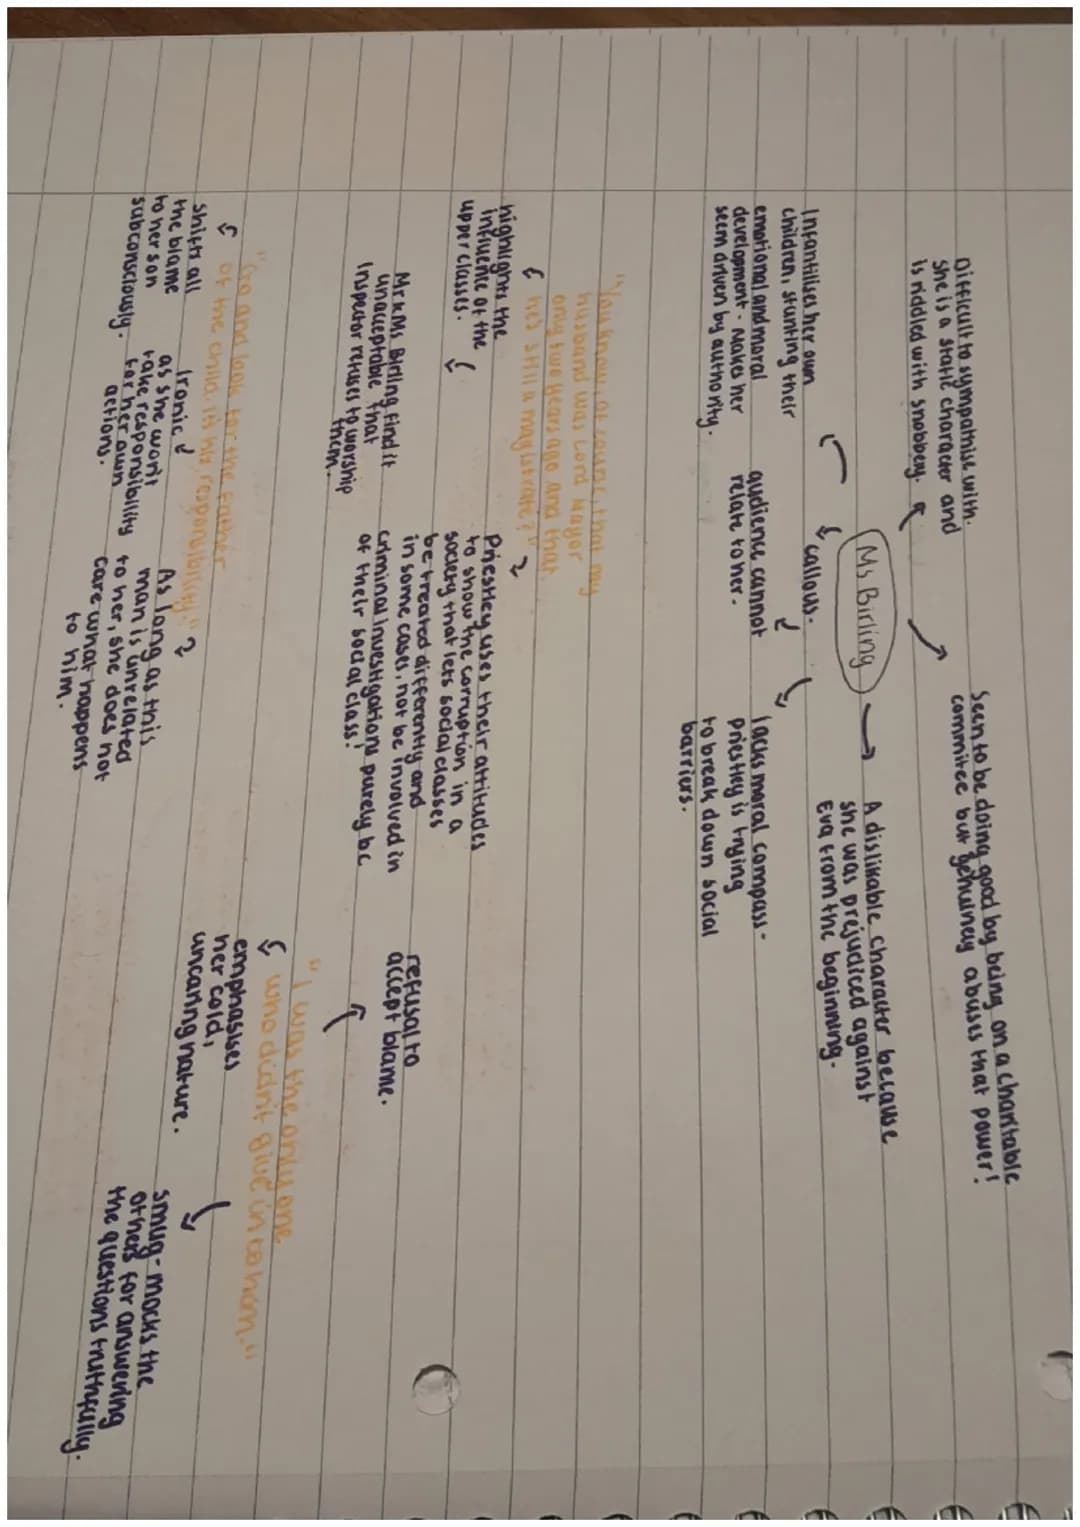 Difficult to sympathise with.
She is a static character and
is riddled with snobbery.
Seen to be doing good by being on a charitable
commitee but genuinely abuses that power!
Ms Birling
A dislikable character because
she was prejudiced against
Eva from the beginning.
Infantilises her own
children, stunting their
emotional and moral
development - Makes her
seem driven by authority.
callous -
audience cannot
relate to her.
lacks moral compass -
priestley is trying
to break down social
barriers.
"You know, of course, that my
husband was Lord Mayor
only two years ago and that
he's still a magistrate?"
highlights the
influence of the
upper classes.
Mr & Ms Birling find it
unacceptable that
Inspector refuses to worship
them.
Priestley uses their attitudes
to show the corruption in a
society that lets social classes
be treated differently and
in some cases, not be involved in
criminal investigations purely bc
of their social class!
refusal to
accept blame.
"I was the only one
who didn't give in to him."
emphasises
her cold,
uncaring nature.
smug - mocks the
others for answering
the questions truthfully.
"Go and look for the father
of the child. It's his responsibility."
shifts all
the blame
to her son
subconsciously.
Ironic
as she won't
take responsibility
for her own
actions.
As long as this
man is unrelated
to her, she does not
care what happens
to him.